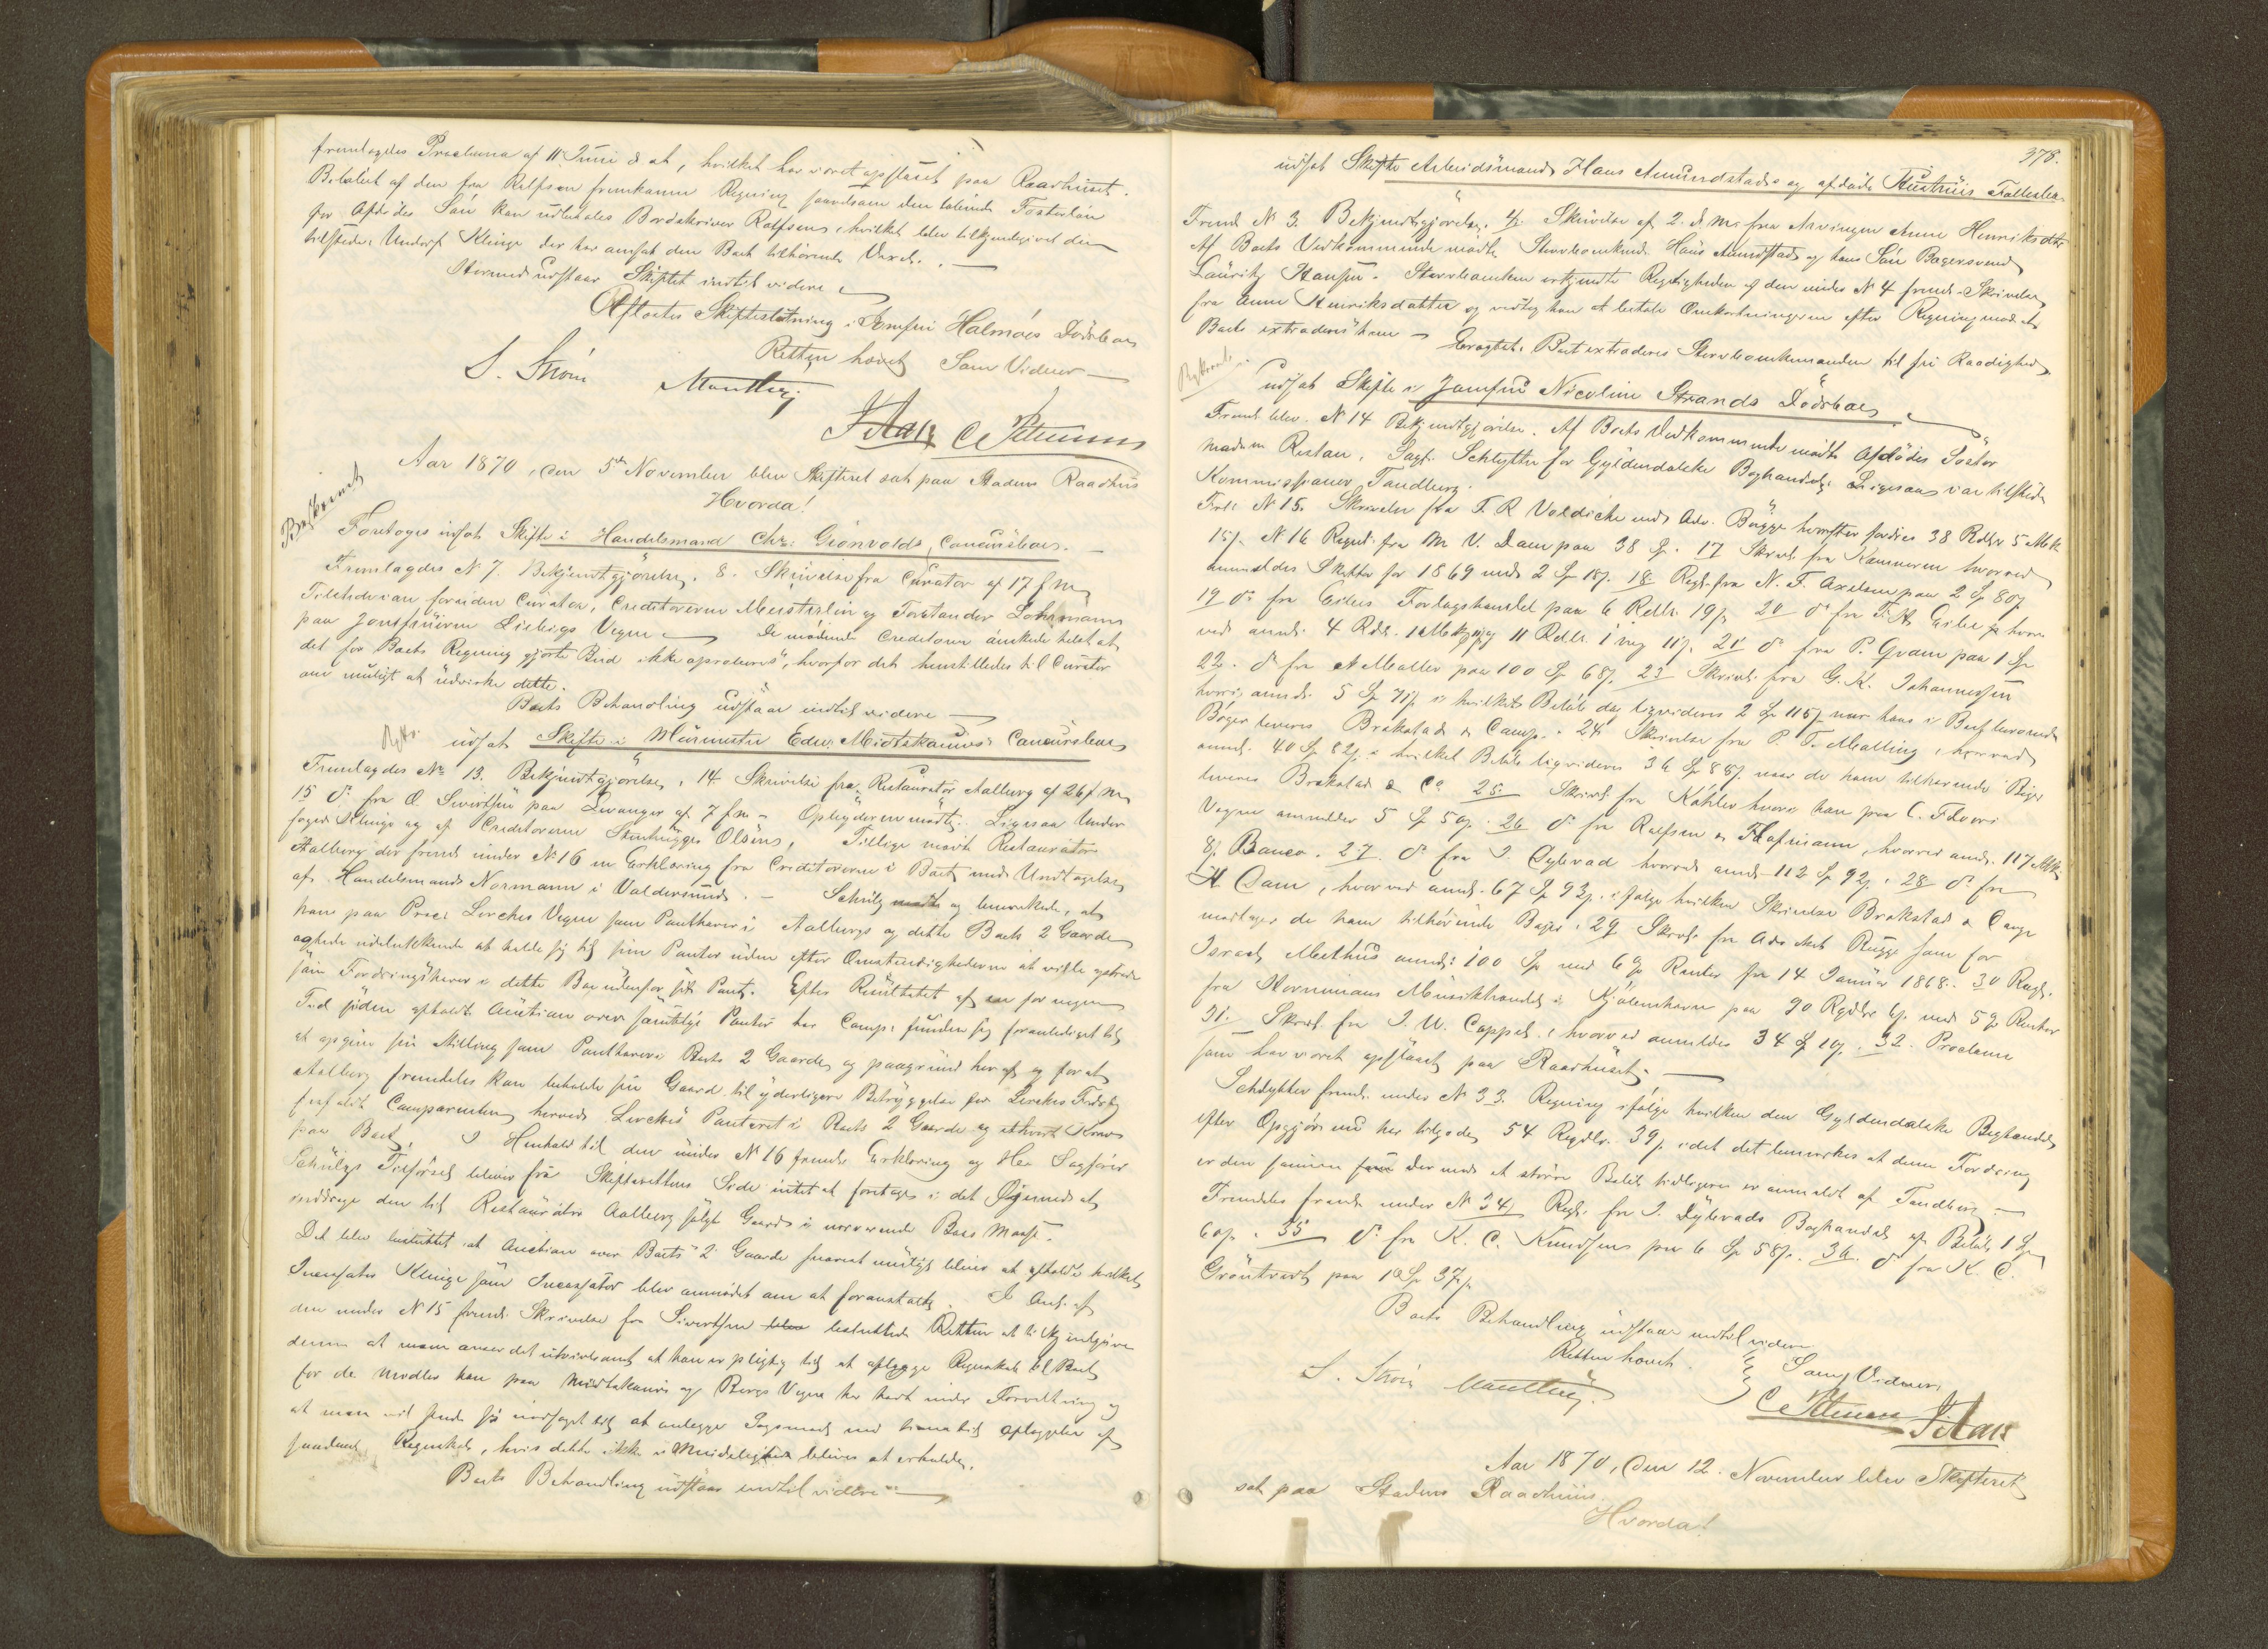 fremlagdes Proclama af 11 Juni d. A., hvilket har været opslaaet paa Raadhuset.
Beløbet af den fra Rolfsen fremkomne Regning saavelsom den talende Fosterløn
for Afdødes Søn kan udbetales Bordskriver Rolfsen, hvilket blev tilkjendegivet den
tilstedev. Underf. Klinge der har ansat den Boet tilhørende
Hermed udstaar Skiftet indtil videre
Skifteslutning i Jomfru Halmøes Dødsbo
Retten hævet Som Vidner
S. Strøm
C Petersen
Aar 1870, den 5te November blev Skifteret sat paa Stadens Raadhus
Hvorda!
Beskrevet
Foretoges udsat Skifte i Handelsmand Chr. Grønvolds Concursboes.
Fremlagdes No 7. Bekjendtgjørelse, 8. Skrivelse fra Curator af 17 f. M.
Tilstede var foruden Curator, Creditorerne Meisterlin og Forstander Lohrmann
paa Jomfruerne Liebigs Vegne. De mødende Creditorer ønskede helst at
det for Boets Regning gjorte Bud ikke aproberes, hvorfor det henstilledes til Curator
om muligt at udvirke dette.
Boets Behandling udstaar indtil videre
udsat Skifte i Murmester Edw. Midtskaunes Concursboes
Fremlagdes No 13. Bekjendtgjørelse, 14 Skrivelse fra Restauratør Aalberg af 26 f. M.
15 do fra O. Sivertsen paa Levanger af 7 f. M. Opbyderen mødte. Ligesaa Under
foged Klinge og af Creditorerne Stenhugger Olsens, Tillige mødte Restauratør
Aalberg der freml. under No 16 en Erklæring fra Creditorerne i Boet med Undtagelse
af Handelsmand Normann i Valdersund. Schulz mødte og bemærkede, at
han paa Proc. Lerches Vegne som Panthaver i Aalbergs og dette Boets 2 Gaarde
agtede udelukkende at holde sig til sine Panter uden efter Omstændighederne at ville optræde
som Fordringshaver i dette Bo udenfor sit Pant. Efter Resultatet af en for nogen
Tid siden afholdt Auction over samtlige Panter har Comp. funden sig foranlediget til
at opgive sin Stilling som Panthaver i Boets 2 Gaarde, og paagrund heraf og for at
Aalberg fremdeles kan beholde sin Gaard til yderligere Betryggelse for Lerches Fordring
frafaldt Comparenten herved Lerches Panteret i Boets 2 Gaarde og ethvert Krav
paa Boet. I Henhold til den under No 16 freml. Erklæring og Hr Sagfører
Schulzs Tilførsel bliver fra Skifterettens Side intet at foretages i det Øjemed at
inddrage den til Restauratør Aalberg solgte Gaard i nærværende Boes Masse.
Det blev besluttet at Auction over Boets 2 Gaarde snarest muligt bliver at afholde hvilket
Incassator Klinge som Incassator blev anmodet om at foranstalte. I Anl. af
den under No 15 freml. Skrivelse fra Sivertsen blev besluttede Retten at tilkjendegive
denne at man anser det utvivlsomt at han er pligtig til at aflægge Regnskab til Boet
for de Midler han paa Midtskaunes og Bergs Vegne har havt under Forvaltning og
at man vil finde sig nødsaget til at anlægge Sagsmaal med
saadant Regnskab, hvis dette ikke i Mindelighed bliver at erholde.
Boets Behandling udstaar indtil videre
378.
udsat Skifte Arbeidsmand Hans Amundstads og afdøde Hustrues Fællesbo.
Freml. No 3. Bekjendtgjørelse, 4. Skrivelse af 2. d. M. fra Arvingen Anne Henriksdtr
Af Boets Vedkommende mødte Stervboenkem. Hans Amundstad og hans Søn Bagersvend
Lauritz Hansen. Stervboenken erkjendte Rigtigheden af den under No 4 freml. Skrivelse
fra Anne Henriksdatter og vedtog han at betale Omkostningerne efter Regning mod at
Boet extraderes ham. Eragtet: Boet extraderes Stervboenkemanden til fri Raadighed
udsat Skifte i Jomfru Nicoline Strands Dødsboes
Freml. blev No 14 Bekjendtgjørelse. Af Boets Vedkommende mødte Afdødes Søster
Madam Restau, Sagf. Schlytter for Gyldendalske Boghandel. Ligesaa var tilstede
Kommissionær Tandberg.
Freml. No 15. Skrivelse fra F. R. Valdicke med Adv. Bugge hvorefter fordres 38 Rdlr 5 Mk
15 s. No 16 Regnl. fra M. V. Dam paa 38 Sp. 17 Skrivl. fra Kæmneren hvorved
anmeldes Skatter for 1869 med 2 Sp 18 s. 18. Regl. fra N. F. Axelsen paa 2 Sp 80 s
19 do fra Eibes Forlagshandel paa 6 Rdlr. 19 s. 20 do fra F. H. Eibe hvor
ved anml. 4 Rdlr. 1 Mk og 11 Rdlr. 1 11 s. 21 do fra P. Qvam paa 1 Sp
22. do fra A Malling paa 100 Sp 68 s. 23 Skrivl. fra G. K. Johannessen
hvori anml. 5 Sp 71 s i hvilket Beløb dog liqvideres 2 Sp 115 s naar hans i Boet beroende
Bøger leveres Brækstad & Comp. 24 Skrivelse fra P. T. Malling, hvorved
anml. 40 Sp 82 s. i hvilket Beløb liqvideres 36 Sp 88 s. naar de ham tilhørende Bøger
leveres Brækstad & Co 25. Skrivl. fra Køhler hvori han paa C. Floors
Vegne anmelder 5 Sp 50 s. 26 do fra Rolfsen & Hofmann, hvorved anml. 117 Mk
8 s. Banco. 27. do fra J. Dybvad hvorved anml. 112 Sp 92 s. 28 do fra
H. Dam, hvorved anml. 67 Sp 93 s. i følge hvilken Skrivelse Brækstad & Comp
modtager de ham tilhørende Bøger. 29 Skrivl. fra Adv. Bugge som for
Israel Mæhus anml. 100 Sp med 6 % Renter fra 14 Januar 1868. 30 Regl.
fra Hornemans Musikhandel i Kjøbenhavn paa 90 Rgdlr med 5 % Renter
31. Skrivl. fra J. W. Cappel. i hvorved anmeldes 34 Sp 10 s. 32. Proclama
som har været opslaaet paa Raadhuset.
Schlytter freml. under No 33. Regning ifølge hvilken den Gyldendalske Boghandel
efter Opgjørende har tilgode 54 Rgdlr. 39 s. idet det bemærkes at denne Fordring
er den samme som der med et større Beløb tidligere er anmeldt af Tandberg
Fremdeles freml. under No 34 Regl. fra J. Dybvads Boghandel af Beløb 1 Sp
60 s. 35 do fra K. C. Knudsens paa 6 Sp 58 s. 36. do fra K. C.
Grøntvedt paa 10 Sp 37 s.
Boets Behandling udstaar indtil videre
Retten hævet. Som Vidner
S. Strøm
C Petersen
Aar 1870, den 12. November blev Skifteret
sat paa Stadens Raadhuus
Hvorda!